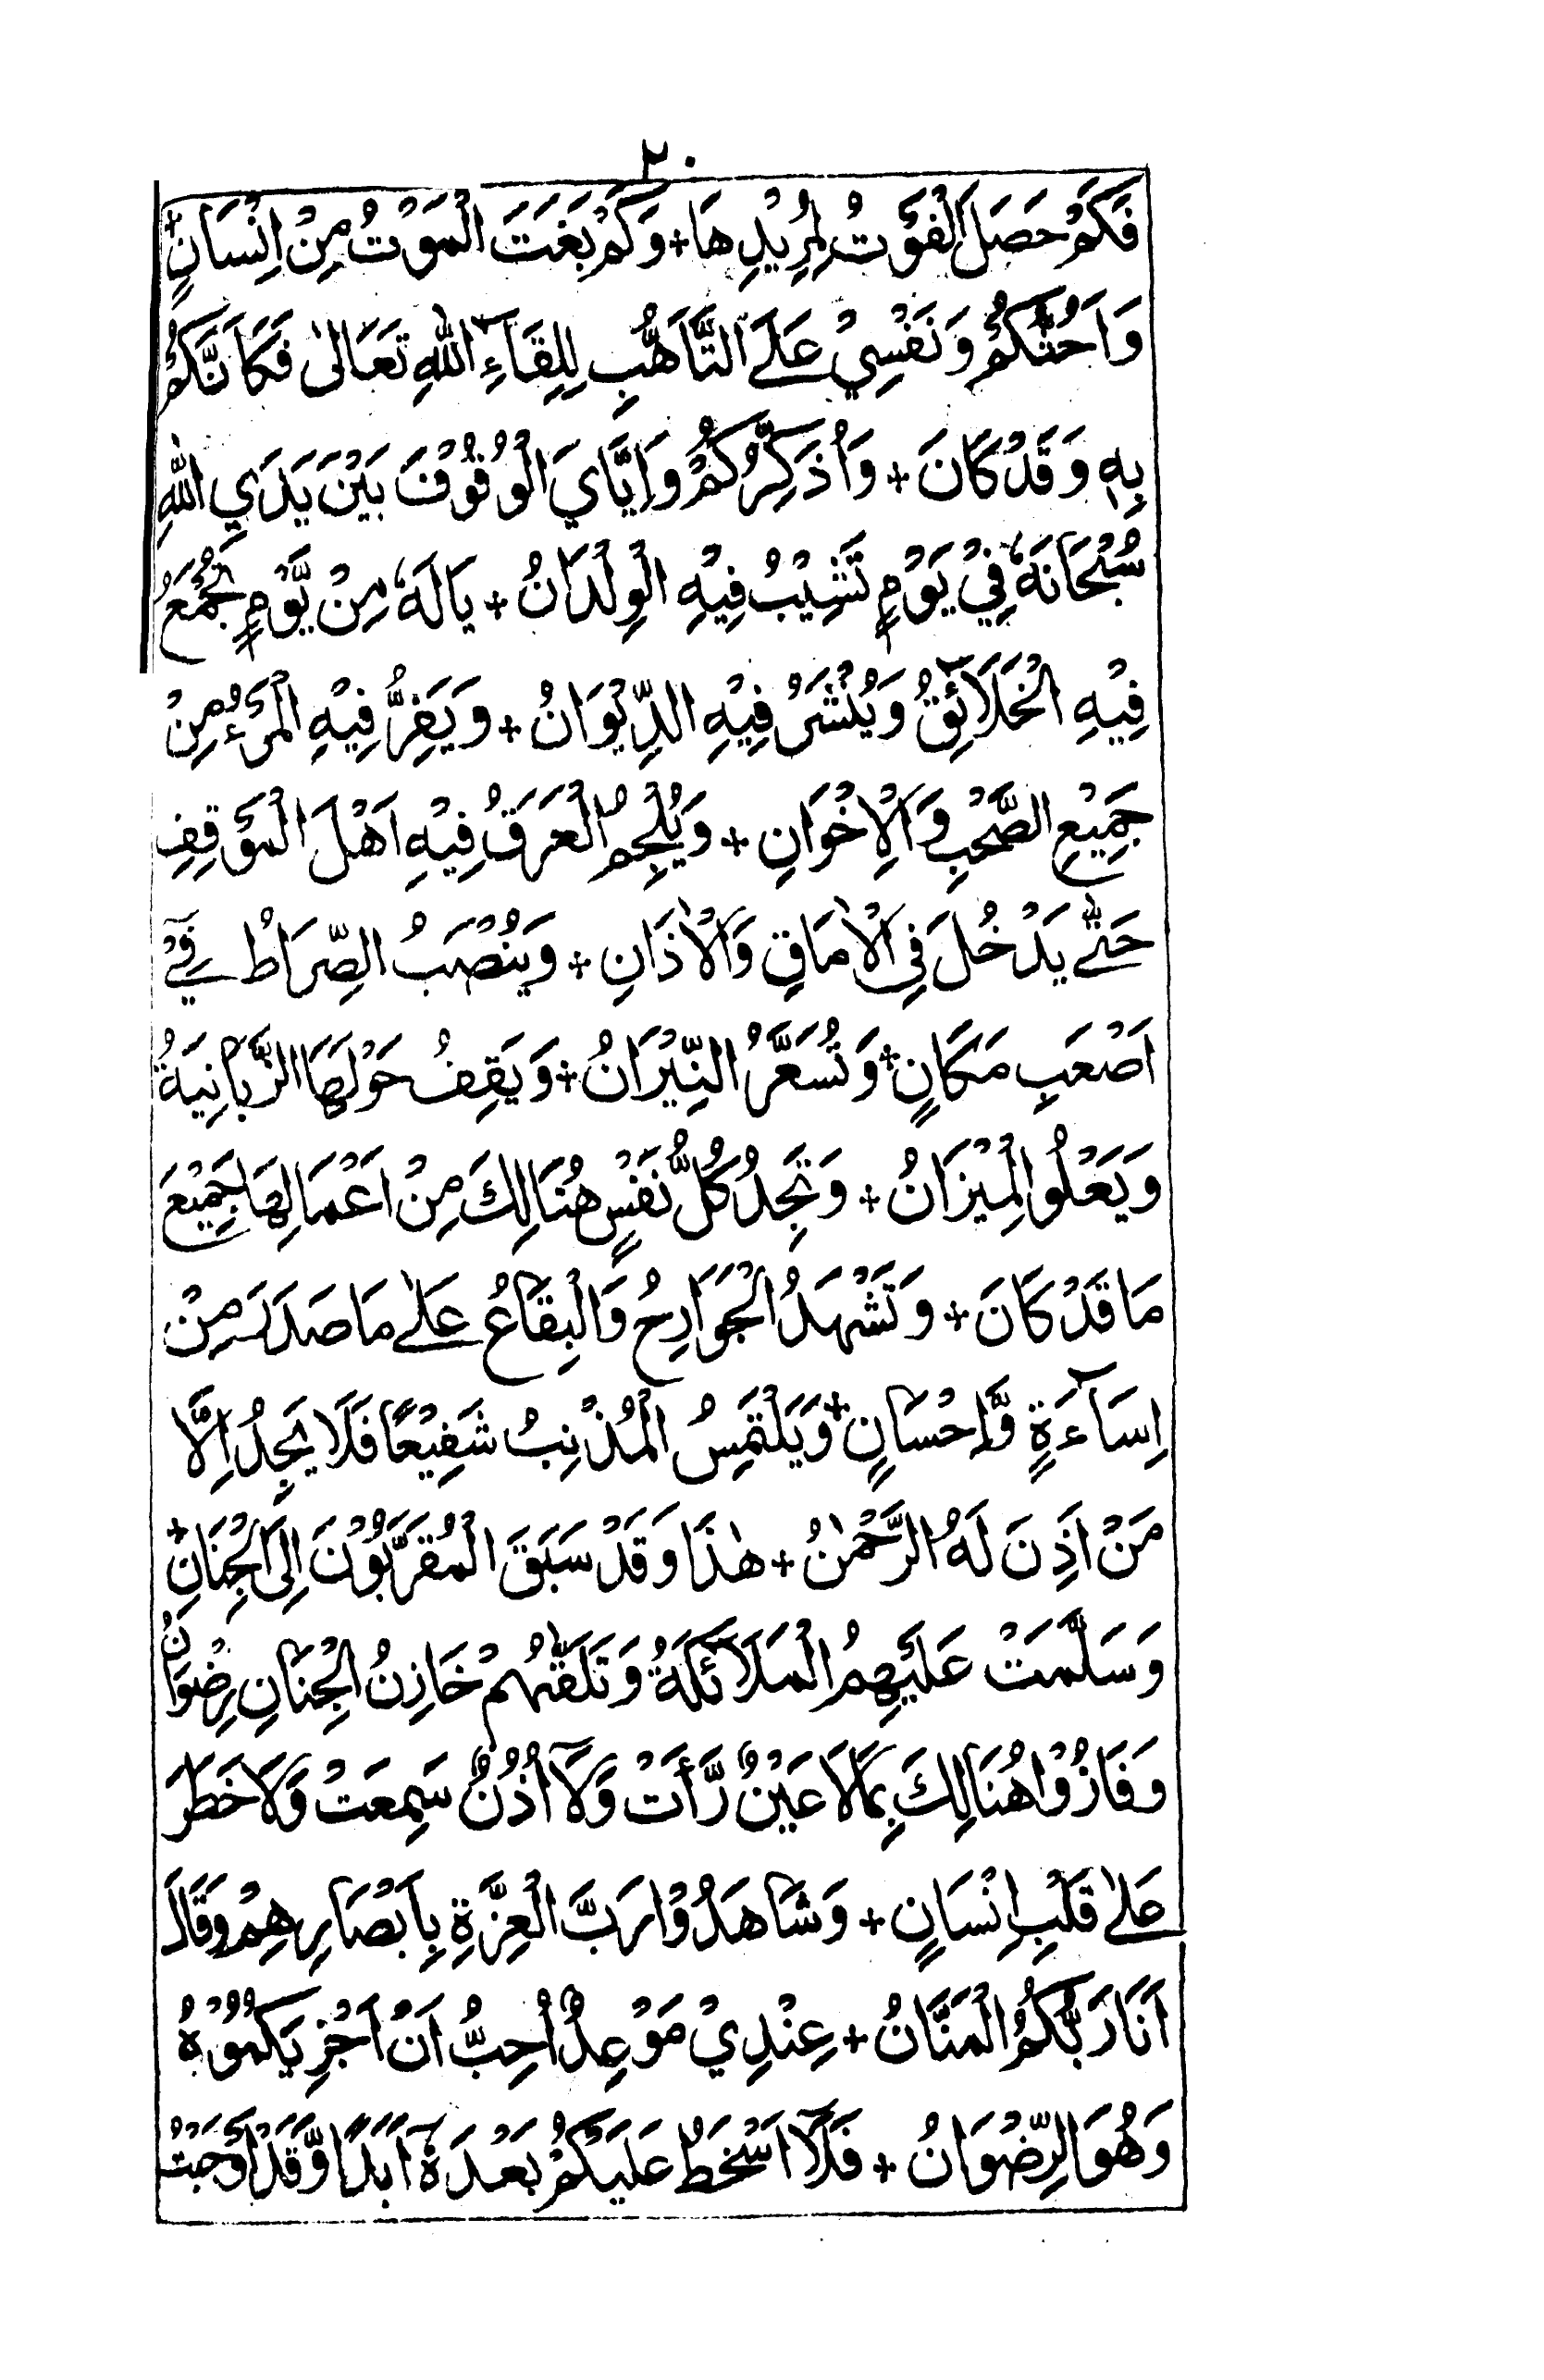 ٢٠
فَكَمْ حَصَلَ الْفَوْتُ لِمُرِيْدِهَا + وَكَمْ بَغَتَ الْمَوْتُ مِنْ اِنْسَانٍ +
وَاَحُثُّكُمْ وَنَفْسِيْ عَلَے التَّاَهُّبِ لِلِقَآءِ اللّٰهِ تَعَالٰى فَكَاَنَّكُمْ
بِهٖ وَقَدْ كَانَ + وَاُذَكِّرُكُمْ وَاِيَّايَ الْوُقُوْفَ بَيْنَ يَدَيِ اللّٰهِ
سُبْحَانَهٗ فِيْ يَوْمٍ تَشِيْبُ فِيْهِ الْوِلْدَانُ + يَالَهٗ مِنْ يَّوْمٍ تُجْمَعُ
فِيْهِ الْخَلَآئِقُ وَيُنْشَرُ فِيْهِ الدِّيْوَانُ + وَيَفِرُّ فِيْهِ الْمَرْءُ مِنْ
جَمِيْعِ الصَّحْبِ وَالْاِخْوَانِ + وَيُلْجِمُ الْعَرَقُ فِيْهِ اَهْلَ الْمَوْقِفِ
حَتّٰے يَدْخُلَ فِى الْاٰمَاقِ وَالْاٰذَانِ + وَيُنْصَبُ الصِّرَاطُ فِيْٓ
اَصْعَبِ مَكَانٍ + وَتُسَعَّرُ النِّيْرَانُ + وَيَقِفُ حَوْلَهَا الزَّبَانِيَةُ
وَيَعْلُوا الْمِيْزَانُ + وَتَجِدُ كُلُّ نَفْسٍ هُنَالِكَ مِنْ اَعْمَالِهَا جَمِيْعَ
مَا قَدْ كَانَ + وَتَشْهَدُ الْجَوَارِحُ وَالْبِقَاعُ عَلٰے مَا صَدَرَ مِنْ
اِسَآءَةٍ وَّاِحْسَانٍ + وَيَلْتَمِسُ الْمُذْنِبُ شَفِيْعًا فَلَا يَجِدُ اِلَّا
مَنْ اَذِنَ لَهُ الرَّحْمٰنُ + هٰذَا وَقَدْ سَبَقَ الْمُقَرَّبُوْنَ اِلَى الْجِنَانِ +
وَسَلَّمَتْ عَلَيْهِمُ الْمَلَآئِكَةُ وَتَلَقّٰهُمْ خَازِنُ الْجِنَانِ رِضْوَانُ
وَفَازُوْا هُنَالِكَ بِمَا لَا عَيْنٌ رَّأَتْ وَلَآ اُذُنٌ سَمِعَتْ وَلَا خَطَرَ
عَلٰے قَلْبِ اِنْسَانٍ + وَشَاهَدُوْا رَبَّ الْعِزَّةِ بِاَبْصَارِهِمْ وَقَالَ
اَنَا رَبُّكُمُ الْمَنَّانُ + عِنْدِيْ مَوْعِدٌ اُحِبُّ اَنْ اُجْزِيَكُمُوْهُ
وَهُوَ الرِّضْوَانُ + فَلَآ اَسْخَطُ عَلَيْكُمْ بَعْدَهٗٓ اَبَدًا وَّقَدْ اَوْجَبْتُ